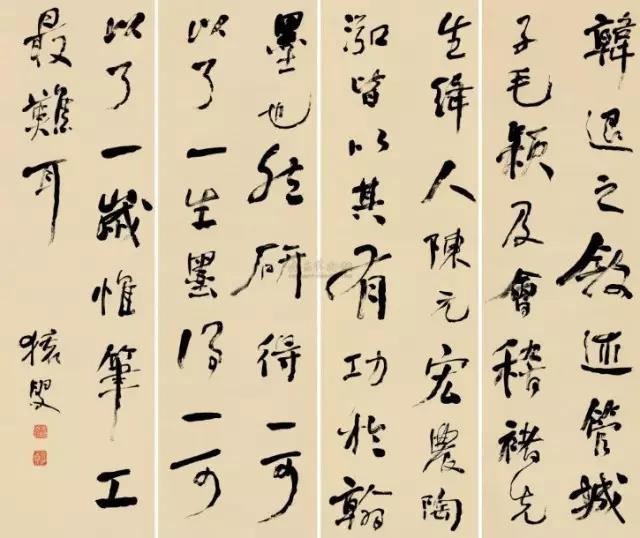 韓退之敘述管城
子毛穎及會稽褚先
生絳人陳元宏農陶
泓皆以其有功於翰
墨也然研得一可
以了一生墨得一可
以了一歲惟筆工
最難耳
猿叟